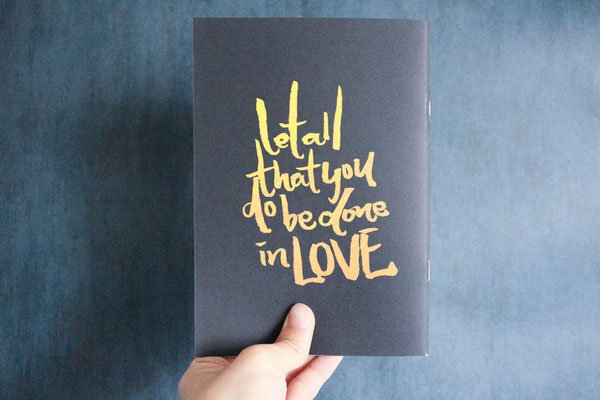 let all
that you
do be done
in LOVE